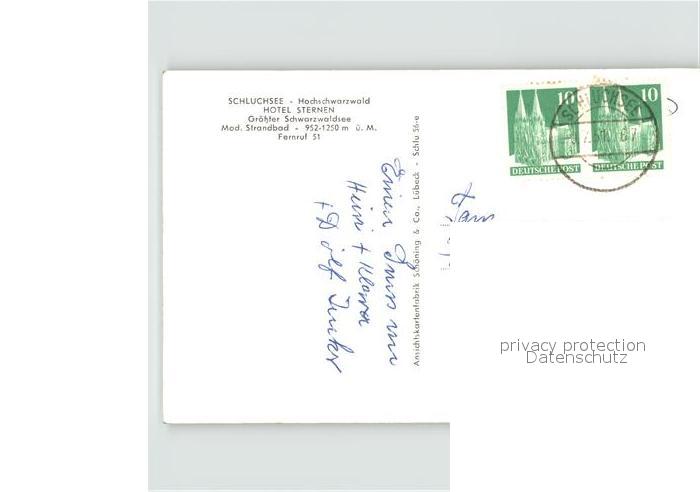 SCHLUCHSEE - Hochschwarzwald
HOTEL STERNEN
Größter Schwarzwaldsee
Mod. Strandbad - 952-1250 m ü. M.
Fernruf 51
Einen Gruss
Heini + Klara
+ Dölf
Ansichtskartenfabrik Schöning & Co., Lübeck - Schlu 56-e
Fam
10
10
SCHLUCHSEE
DEUTSCHE POST
DEUTSCHE POST
privacy protection
Datenschutz